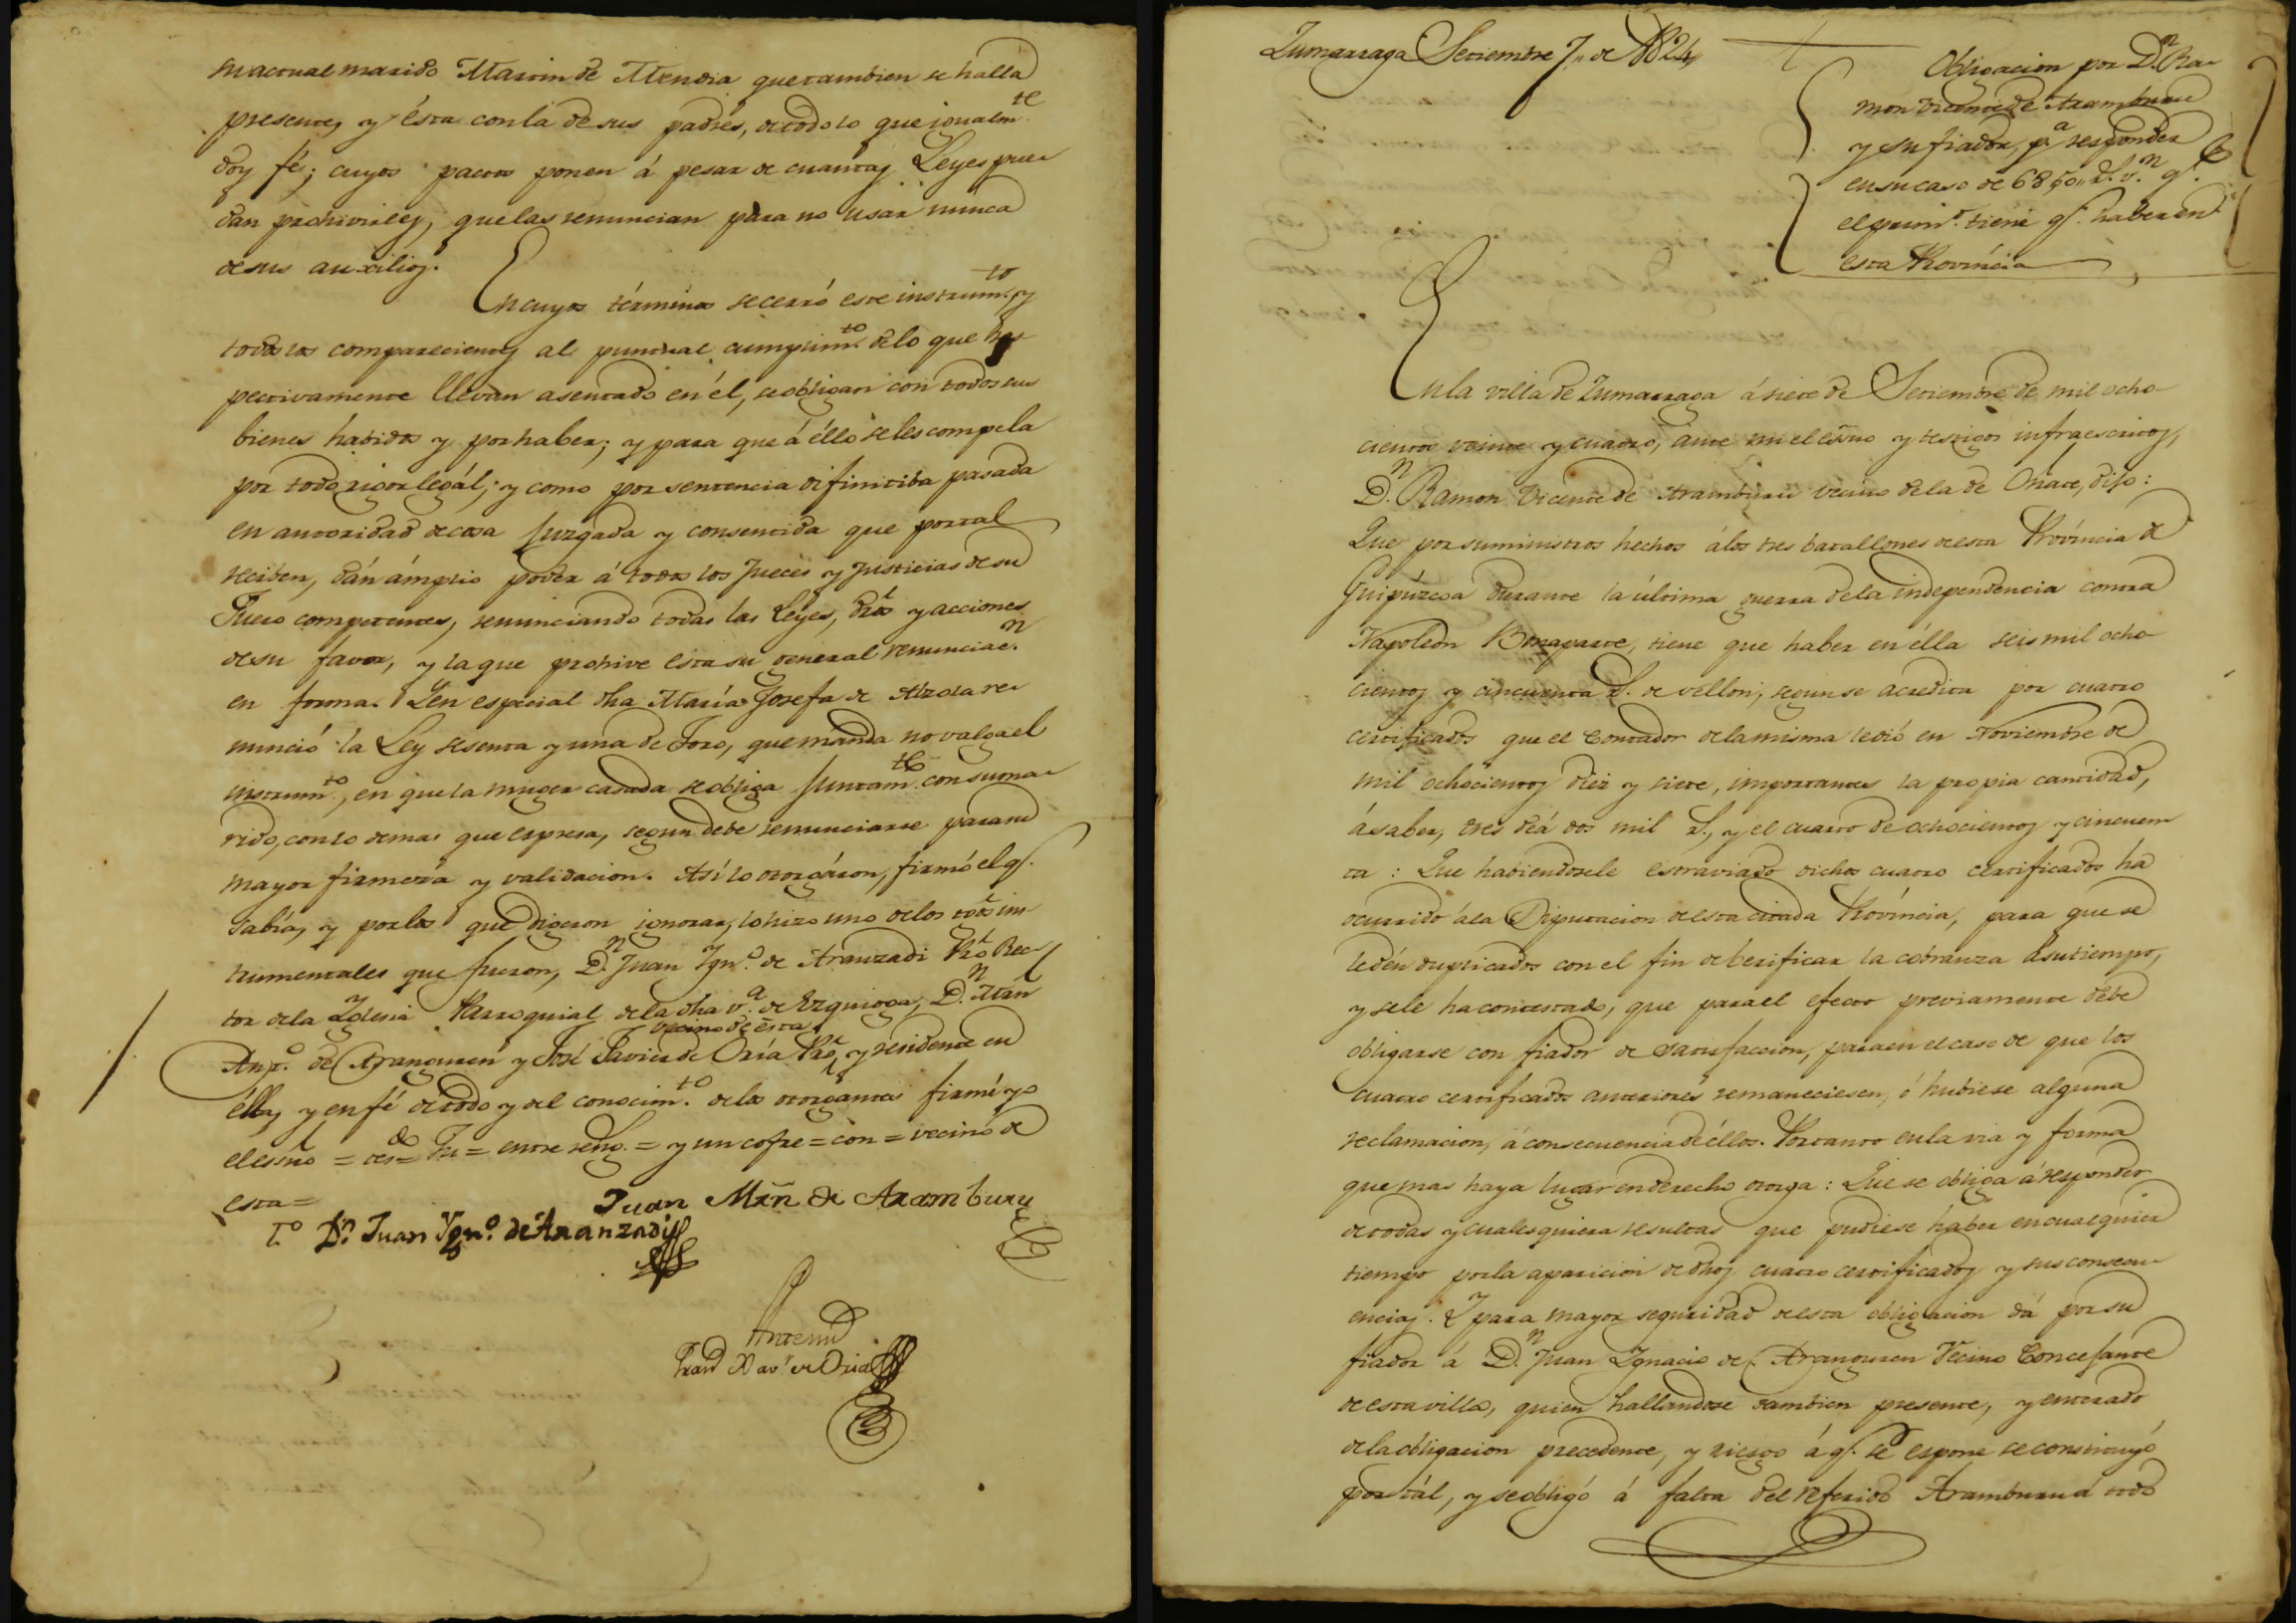 su actual marido Martin de Mendia que tambien se halla
presente, y ésta con la de sus padres, de todo lo que igualm.te
doy fé; cuyos pactos ponen á pesar de cuantas Leyes pue-
dan prohivirles, que las renuncian para no usar nunca
de sus auxilios.
En cuyos términos se cerró este instrum.to y
todos los comparecientes al puntual cumplim.to de lo que res-
pectivamente llevan asentado en él, se obligan con todos sus
bienes habidos y por haber; y para que á éllo se les compela
por todo rigor legál; y como por sentencia difinitiba pasada
en autoridad de cosa juzgada y consentida que por tal
reciben, dán ámplio poder á todos los Jueces y Justicias de su
Fuero competentes, renunciando todas las Leyes, dros y acciones
de su favor, y la que prohive esta su general renunciac.n
en forma. Y en especial dha María Josefa de Alzola re-
nunció la Ley sesenta y una de Toro, que manda no valga el
instrum.to, en que la muger casada se obliga juntam.te con su ma-
rido, con lo demas que espresa, segun debe renunciarse para su
mayor firmeza y validacion. Así lo otorgáron, firmó el q.e
sabía, y por los que digeron ignorar, lo hizo uno de los tgos ins-
trumentales que fueron, D.n Juan Ygn.o de Aranzadi Pro Rec-
tor de la Yglesia Parroquial de la dha v.a de Ezquioga, D.n Man.l
vecino de ésta
Ant.o de Aranguren y José Javier de Oria Pro, y residente en
élla, y en fé de todo y del conocim.to de los otorgantes firmé yo
el essno = des = Fu = entre reng.s = y un cofre = con = vecino de
esta =
Juan Mrn de Aramburu
T.o D.n Juan Ygn.o de Aranzadi
Antemi
Fran.co Xav.r de Oria
Zumarraga Setiembre 7,, de 1824,,
Obligacion por D.n Ra-
mon Vicente de Aramburu
y su fiador, p.a responder
en su caso de 6850,, r.s v.n q.e
el prim.o tiene q.e haber en
esta Província
En la villa de Zumarraga á siete de Setiembre de mil ocho-
cientos veinte y cuatro, ante mi el essno y testigos infraescritos,
D.n Ramon Vicente de Aramburu vecino de la de Oñate, dijo:
Que por suministros hechos á los tres batallones de esta Província de
Guipúzcoa durante la última guerra de la independencia contra
Napoleón Bonaparte, tiene que haber en élla seis mil ocho-
cientos y cincuenta r.s de vellon, segun se acredita por cuatro
certificados que el Contador de la misma le dió en Noviembre de
mil ochocientos diez y siete, importantes la propia cantidad,
á saber, tres de á dos mil r.s, y el cuarto de ochocientos y cincuen-
ta: Que habiendosele estraviado dichos cuatro certificados ha
ocurrido á la Diputacion de esta citada Província, para que se
le dén duplicados con el fin de berificar la cobranza á su tiempo,
y se le ha contestado, que para el efecto previamente debe
obligarse con fiador de satisfaccion, para en el caso de que los
cuatro certificados anteriores remaneciesen, ó hubiese alguna
reclamacion, á consecuencia de éllos. Por tanto en la via y forma
que mas haya lugar en derecho otorga: Que se obliga á responder
de todas y cualesquiera resultas que pudiese haber en cualquier
tiempo por la aparicion de dhos cuatro certificados y sus consecu-
encias. Y para mayor seguridad de esta obligacion dá por su
fiador á D.n Juan Ygnacio de Aranguren Vecino Concejante
de esta villa, quien hallandose tambien presente, y enterado
de la obligacion precedente, y riesgo á q.e se espone se constituyó
por tál, y se obligó á falta del referido Aramburu á todo